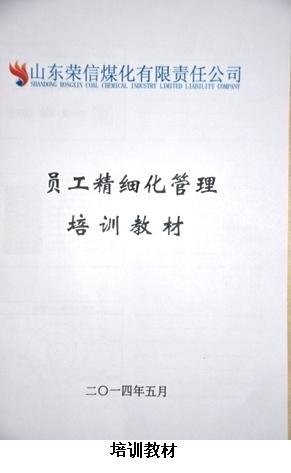 山东荣信煤化有限责任公司
SHANDONG RONGXIN COAL CHEMICAL INDUSTRY LIMITED LIABILITY COMPANY
员工精细化管理
培训教材
二〇一四年五月
培训教材